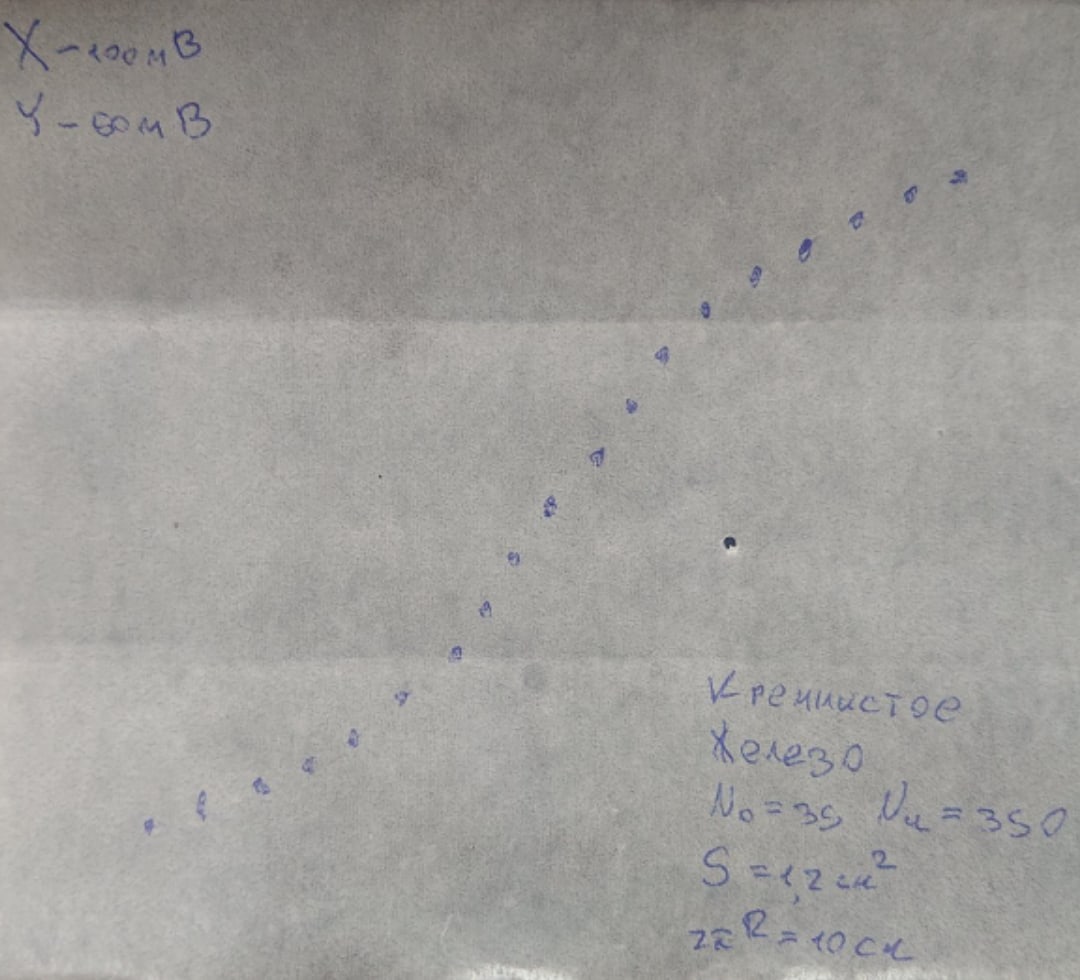 X - 100 мВ
Y - 50 мВ
Кремнистое
Железо
N₀ = 35 Nи = 350
S = 1,2 см²
2πR = 10 см